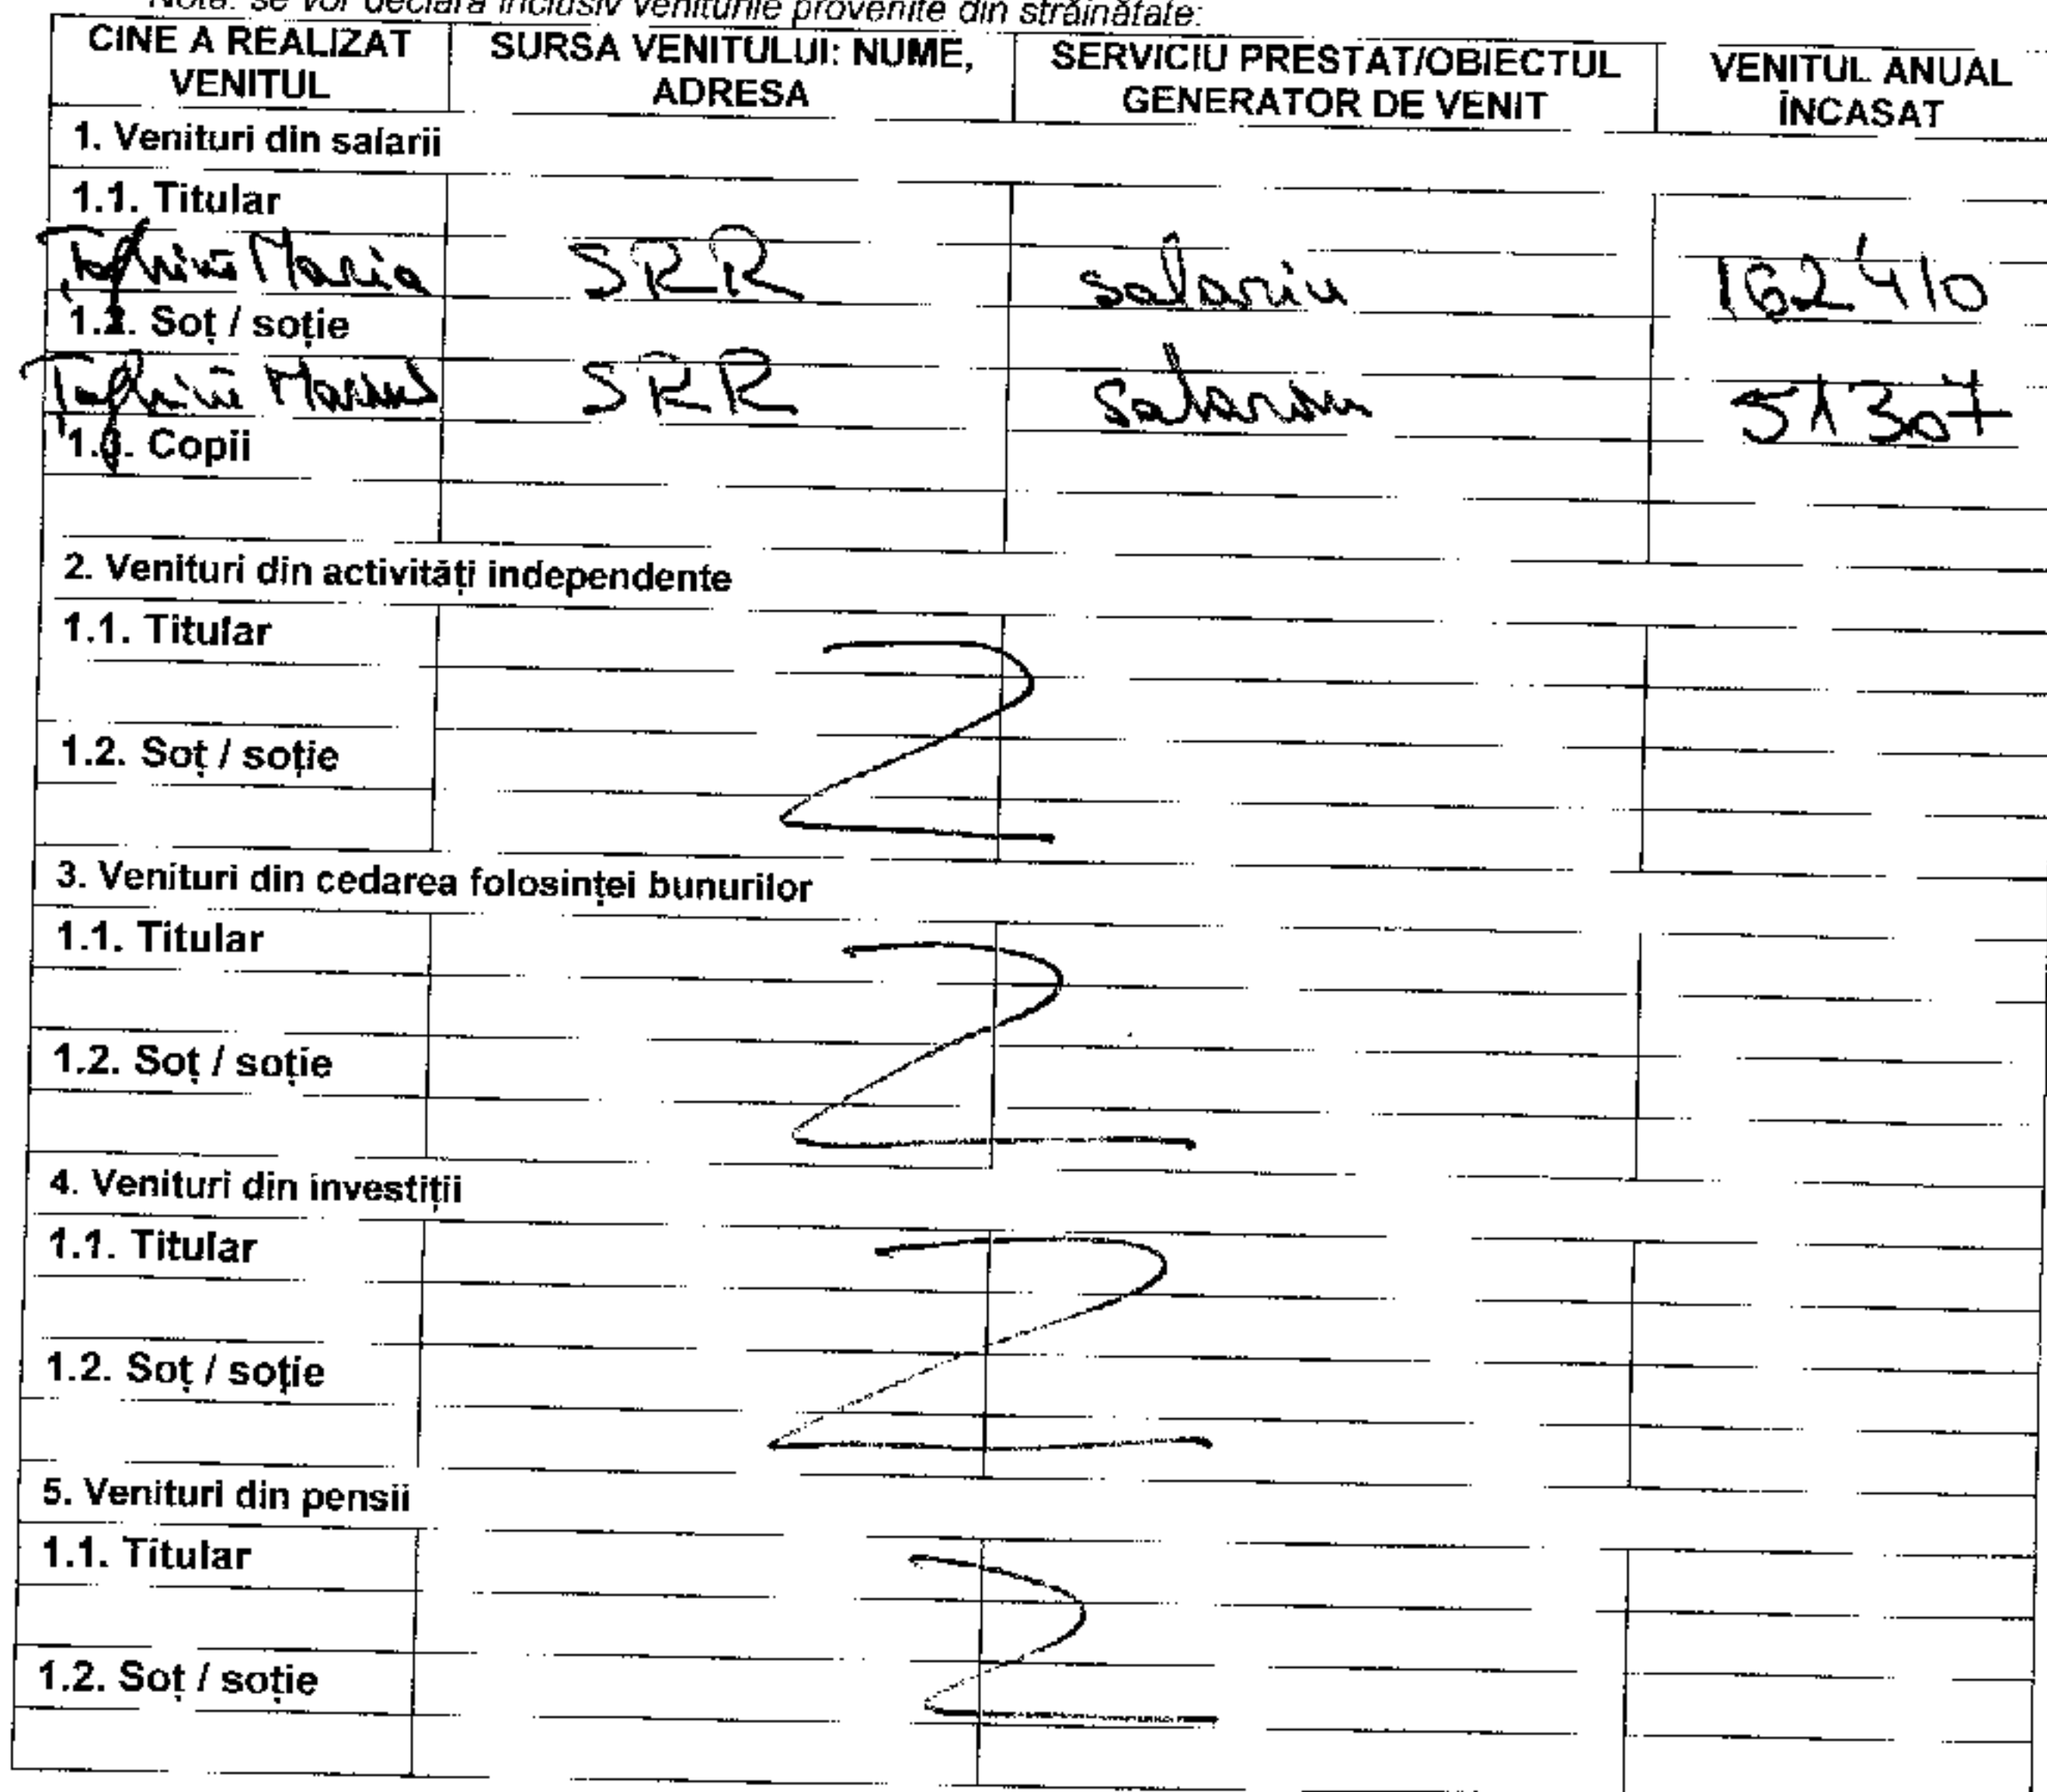 Notă: se vor declara inclusiv veniturile provenite din străinătate:
CINE A REALIZAT VENITUL | SURSA VENITULUI: NUME, ADRESA | SERVICIU PRESTAT/OBIECTUL GENERATOR DE VENIT | VENITUL ANUAL ÎNCASAT
1. Venituri din salarii
1.1. Titular
Maria SRR salariu 162410
1.2. Soț / soție
Marius SRR salariu 51307
1.3. Copii
2. Venituri din activități independente
1.1. Titular
1.2. Soț / soție
3. Venituri din cedarea folosinței bunurilor
1.1. Titular
1.2. Soț / soție
4. Venituri din investiții
1.1. Titular
1.2. Soț / soție
5. Venituri din pensii
1.1. Titular
1.2. Soț / soție